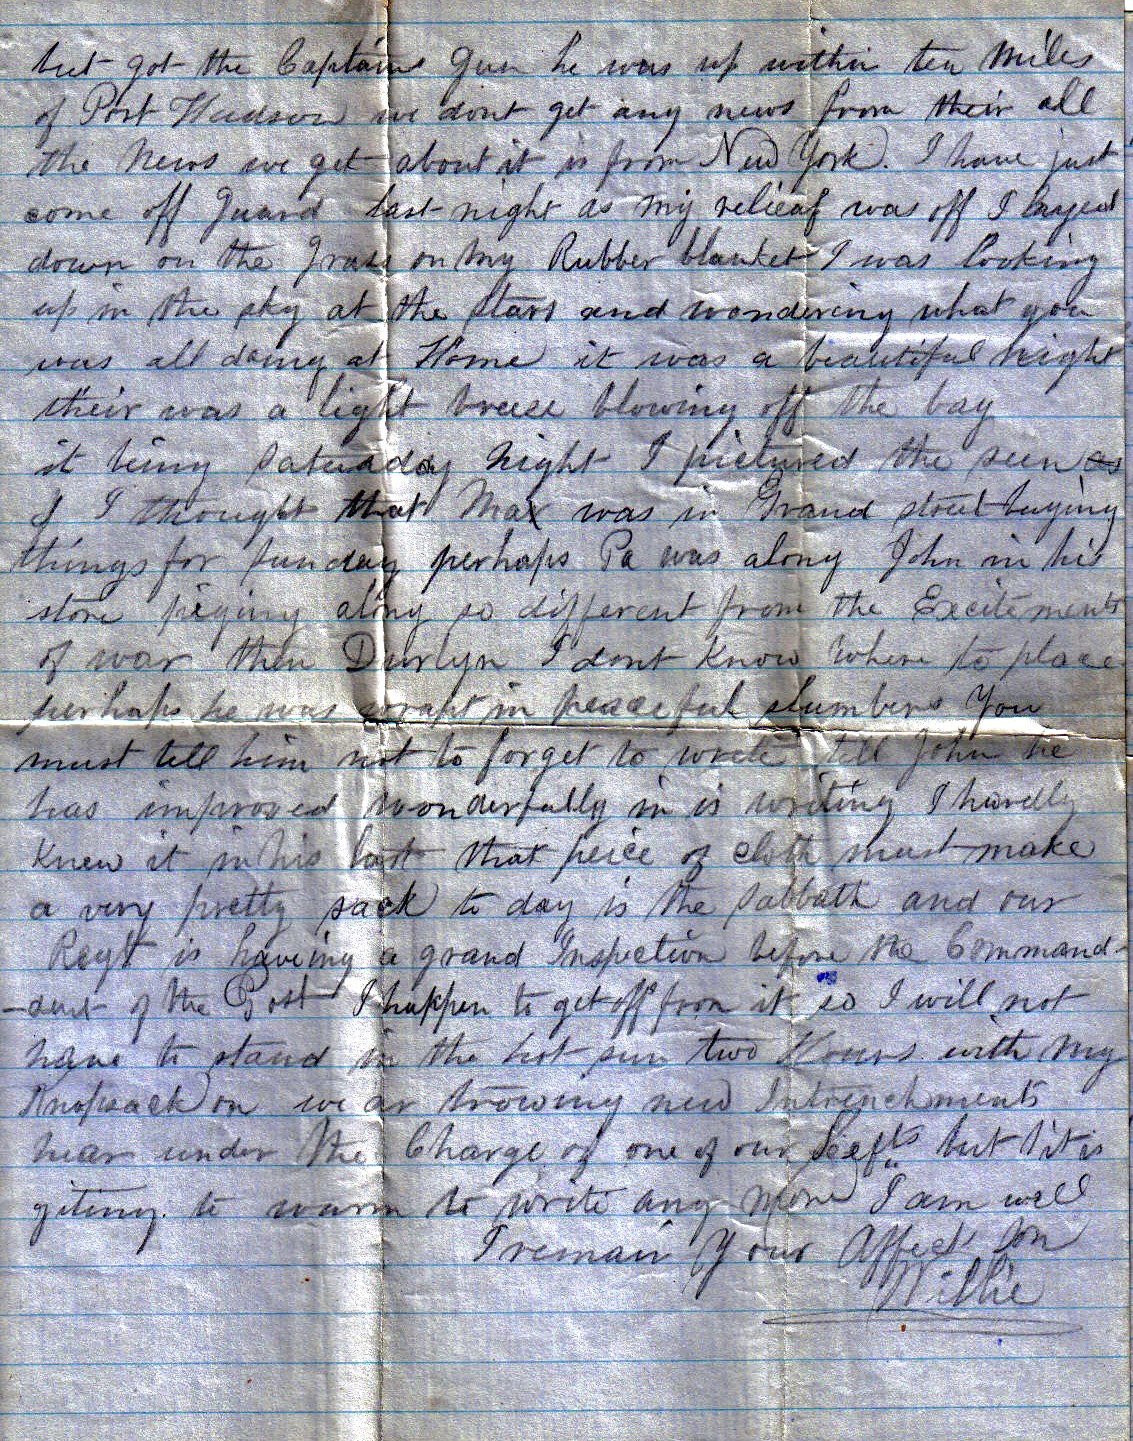 but got the Captains Gun he was up within ten Miles
of Port Hudson we dont get any news from their all
the News we get about it is from New York. I have just
come off Guard last night as my relieaf was off I layed
down on the Grass on My Rubber blanket I was looking
up in the sky at the stars and wondering what you
was all doing at Home it was a beautiful night
their was a light breese blowing off the bay
it being Saturday night I pictured the seen as
if I thought that Ma was in Grand street buying
things for sunday perhaps Pa was along John in his
store along so different from the Excitements
of war then I dont know where to place
perhaps he was wrapt in peaceful slumbers You
must tell him not to forget to write tell John he
has improved wonderfully in is writing I hardly
Knew it in his last that peice of cloth must make
a very pretty sack to day is the Sabbath and our
Regt is haveing a grand Inspection before the Command-
-dent of the Post I happen to get off from it so I will not
have to stand in the hot sun two Hours with My
Knapsack on we ar trowing new Intrenchments
hear under the Charge of one of our but it is
giting to warm to write any More I am well
I remain Your Affect son
Willie